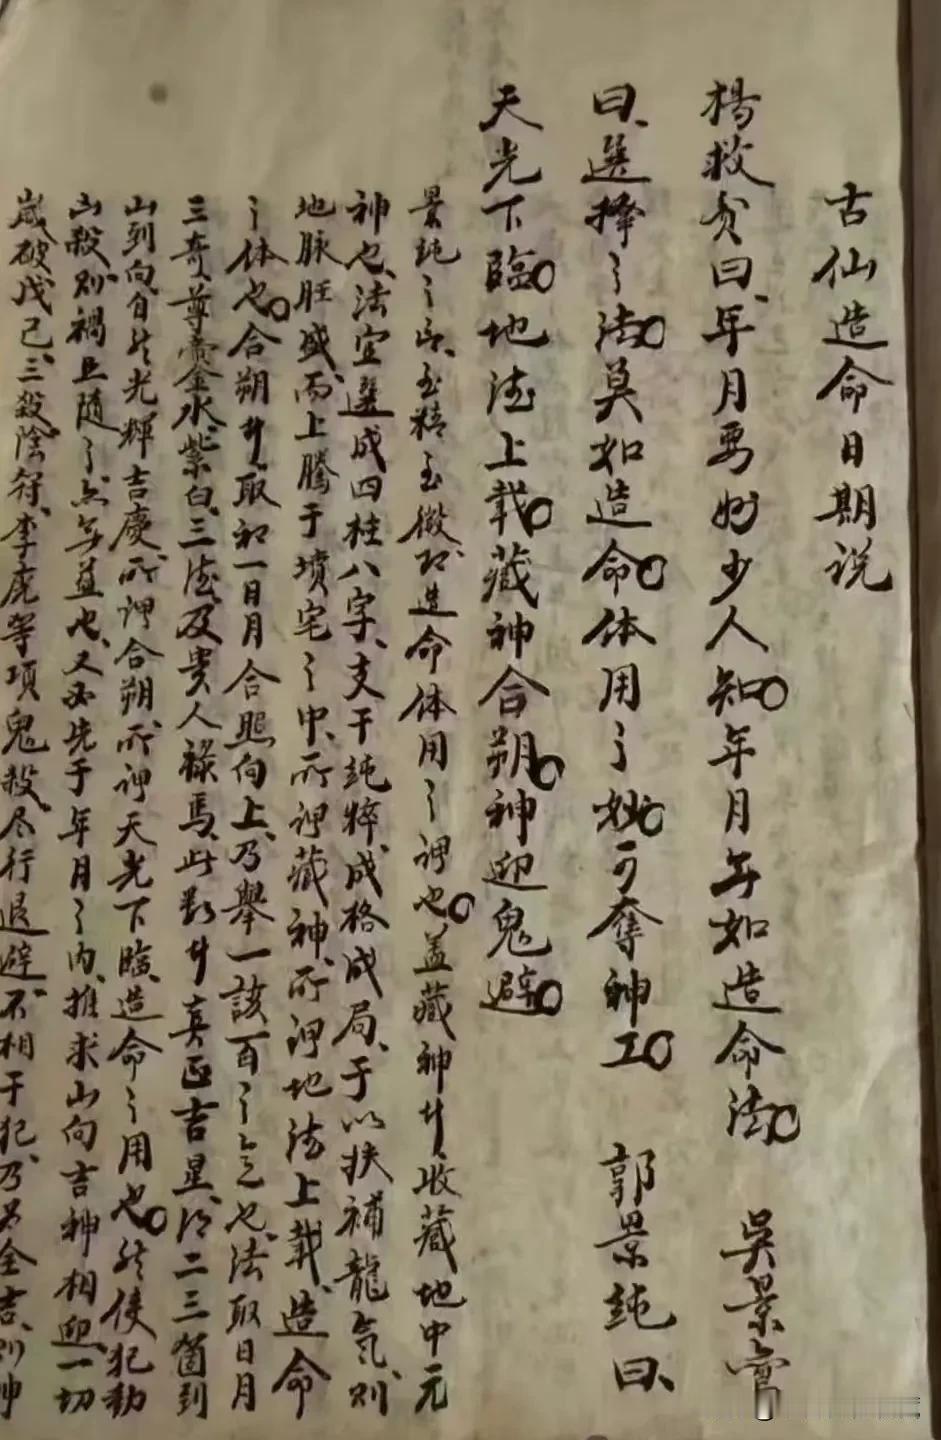 古仙造命日期说
楊救贫曰、年月要妙少人知。年月無如造命法。吳景鸾
曰、選擇之法。莫如造命。体用之妙。可奪神工。郭景純曰、
天光下臨。地德上载。藏神合朔。神迎鬼避。
景純之言、至精至微、即造命体用之謂也。盖藏神者、收藏地中元
神也、法宜選成四柱八字、支干純粹、成格成局、于以扶補龍氣、则
地脉旺盛、而上騰于墳宅之中、所謂藏神、所謂地德上载、造命
之体也。合朔者、取初一日月合照向上、乃舉一該百之意也、法取日月
三奇、尊帝金水、紫白、三德、及贵人禄馬、此數者真正吉星、得二三箇到
山到向、自然光輝吉慶、所謂合朔、所謂天光下臨、造命之用也。然使犯動
山殺、则禍且随之、亦無益也、又必先于年月之内、推求山向吉神相迎、一切
歲破戊己、三殺陰符、李廣等項鬼殺、尽行退避、不相干犯、乃為全吉、则神